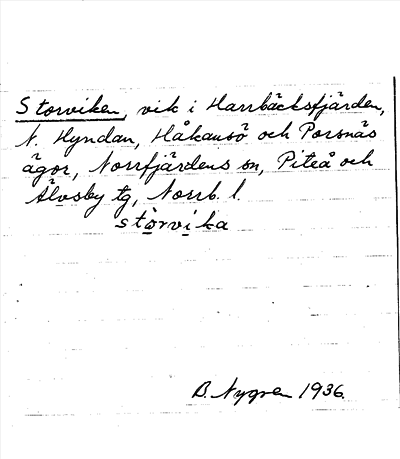 Storviken, vik i Harrbäcksfjärden,
N. Hyndan, Håkansö och Porsnäs
ägor, Norrfjärdens sn, Piteå och
Älvsby tg, Norrb. l.
stòrvìka
B. Nygren 1936.